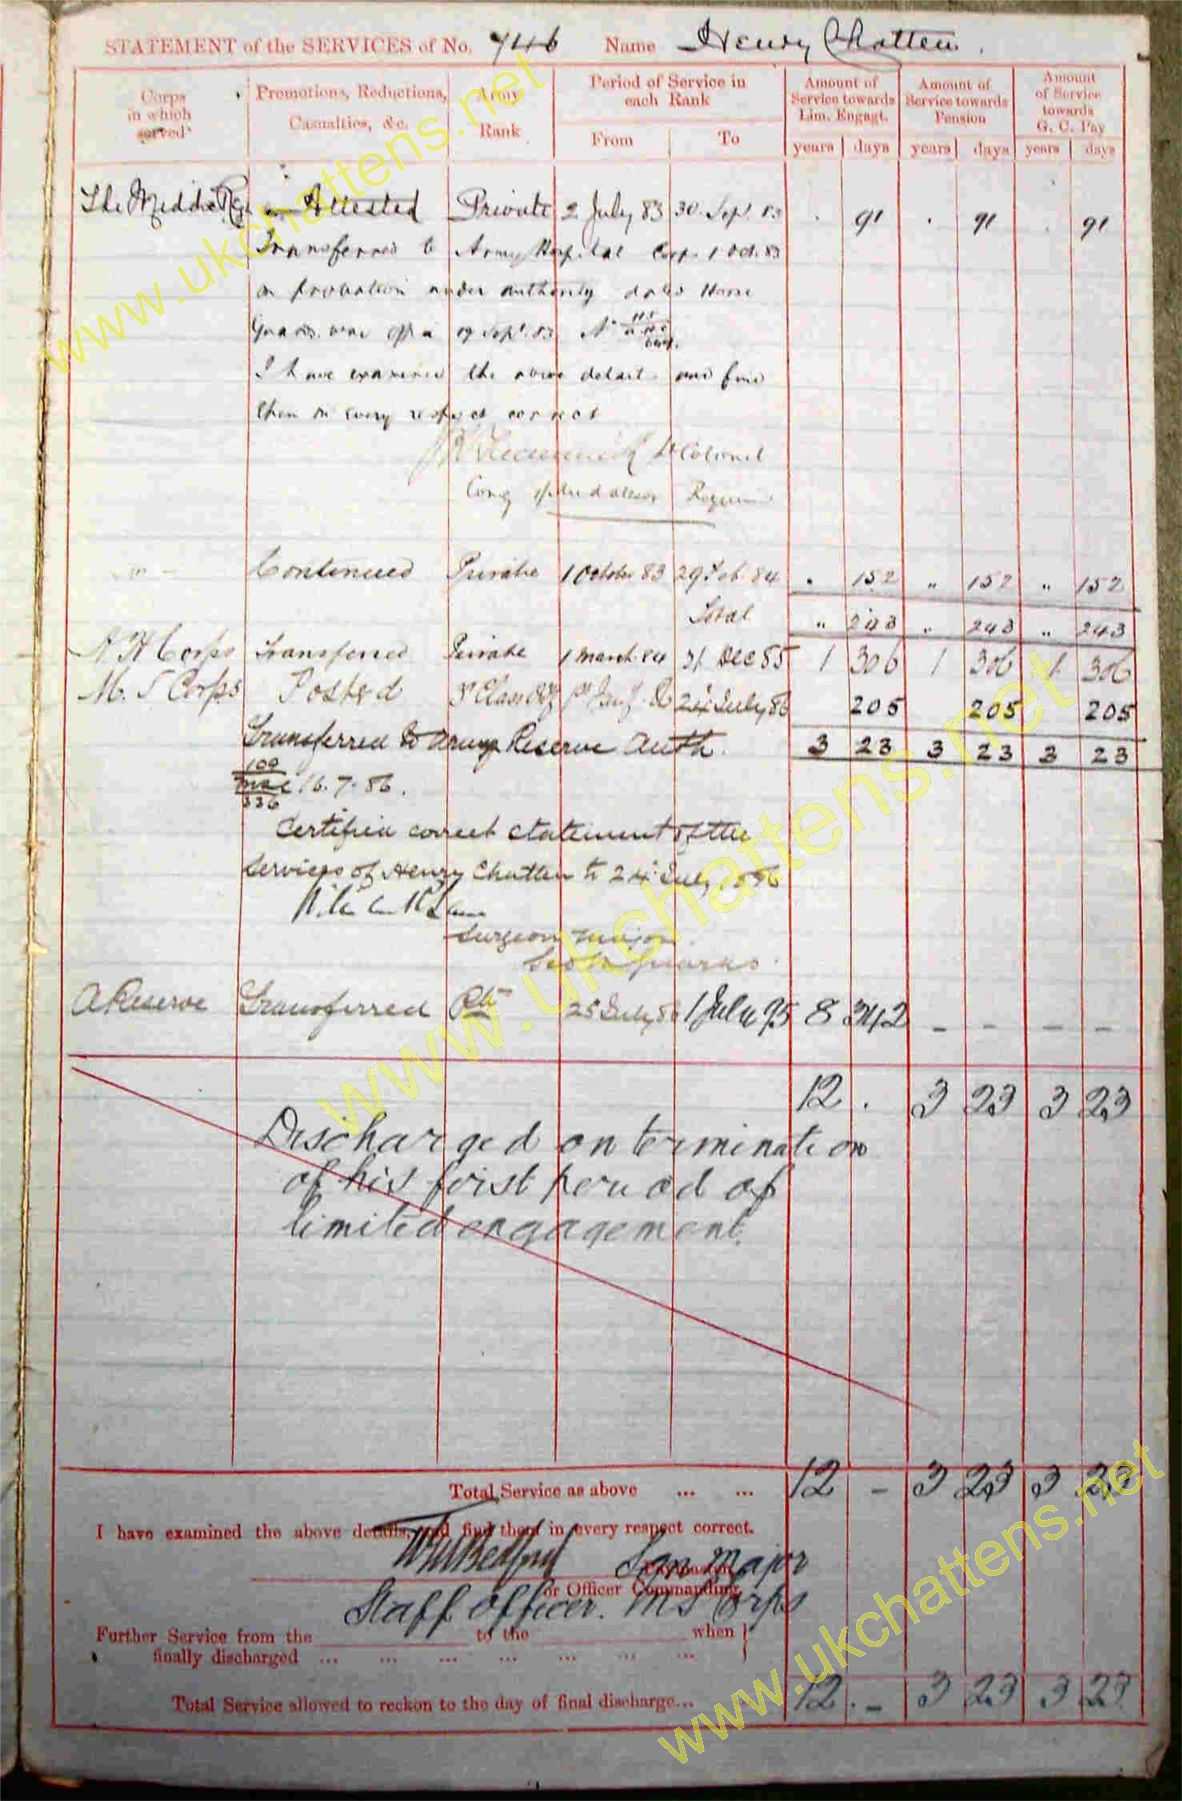 STATEMENT of the SERVICES of No. 7446 Name Henry Chatten.
Corps in which served
Promotions, Reductions, Casualties, &c.
Army Rank
Period of Service in each Rank
From To
Amount of Service towards Lim. Engagt.
Amount of Service towards Pension
Amount of Service towards G. C. Pay
years days years days years days
The Middx Reg Attested Private 2 July 83 30 Sept 83 . 91 . 91 . 91
Transferred to Army Hospital Corps 1 Oct. 83
on probation under authority dated Horse
Guards 19 Sept. 83 No
I have examined the above details and find
them in every respect correct
Lt Colonel
Comg Middlesex Regiment
Continued Private 1 October 83 29 Feb 84 . 152 " 152 " 152
Total " 243 " 243 " 243
A H Corps Transferred Private 1 March 84 31 Dec 85 1 306 1 306 1 306
M. S Corps Posted 3rd Class 1st Jany. 86 24 July 86 205 205 205
Transferred to Army Reserve Auth. 3 23 3 23 3 23
109
336 16.7.86.
Certified correct statement of the
services of Henry Chatten to 24 July 1886
Surgeon Major
A Reserve Transferred Pte 25 July 86 1 July 95 8 342 - - - -
12 . 3 23 3 23
Discharged on termination
of his first period of
limited engagement.
Total Service as above ... ... 12 - 3 23 3 23
I have examined the above details, and find them in every respect correct.
WM Bedford Sgn Major
or Officer Commanding
Staff Officer. M S Corps
Further Service from the to the when
finally discharged ... ... ... ... ... ... ...
Total Service allowed to reckon to the day of final discharge... 12 . - 3 23 3 23
www.ukchattens.net
www.ukchattens.net
www.ukchattens.net